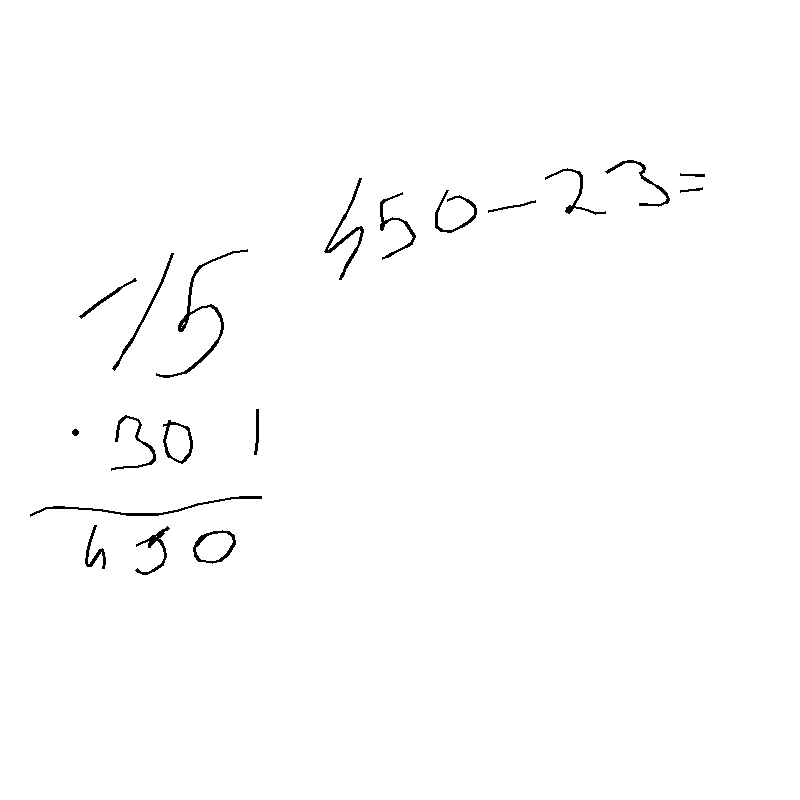 450-23=
15
· 30 1
450